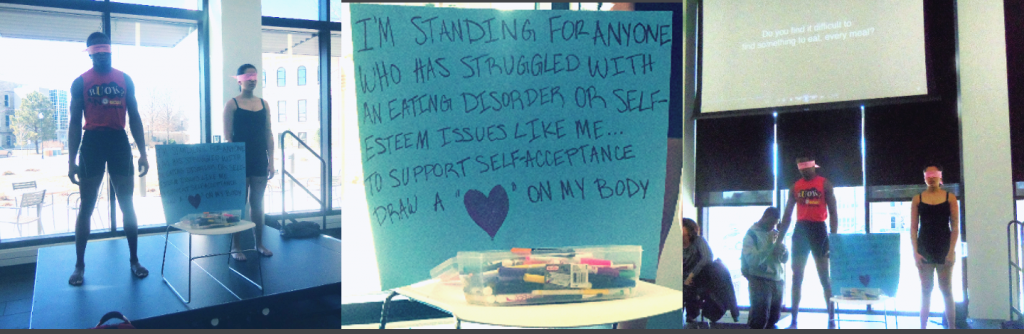 I'M STANDING FOR ANYONE
WHO HAS STRUGGLED WITH
AN EATING DISORDER OR SELF-
ESTEEM ISSUES LIKE ME...
TO SUPPORT SELF-ACCEPTANCE
DRAW A "♥" ON MY BODY
Do you find it difficult to
find something to eat, every meal?